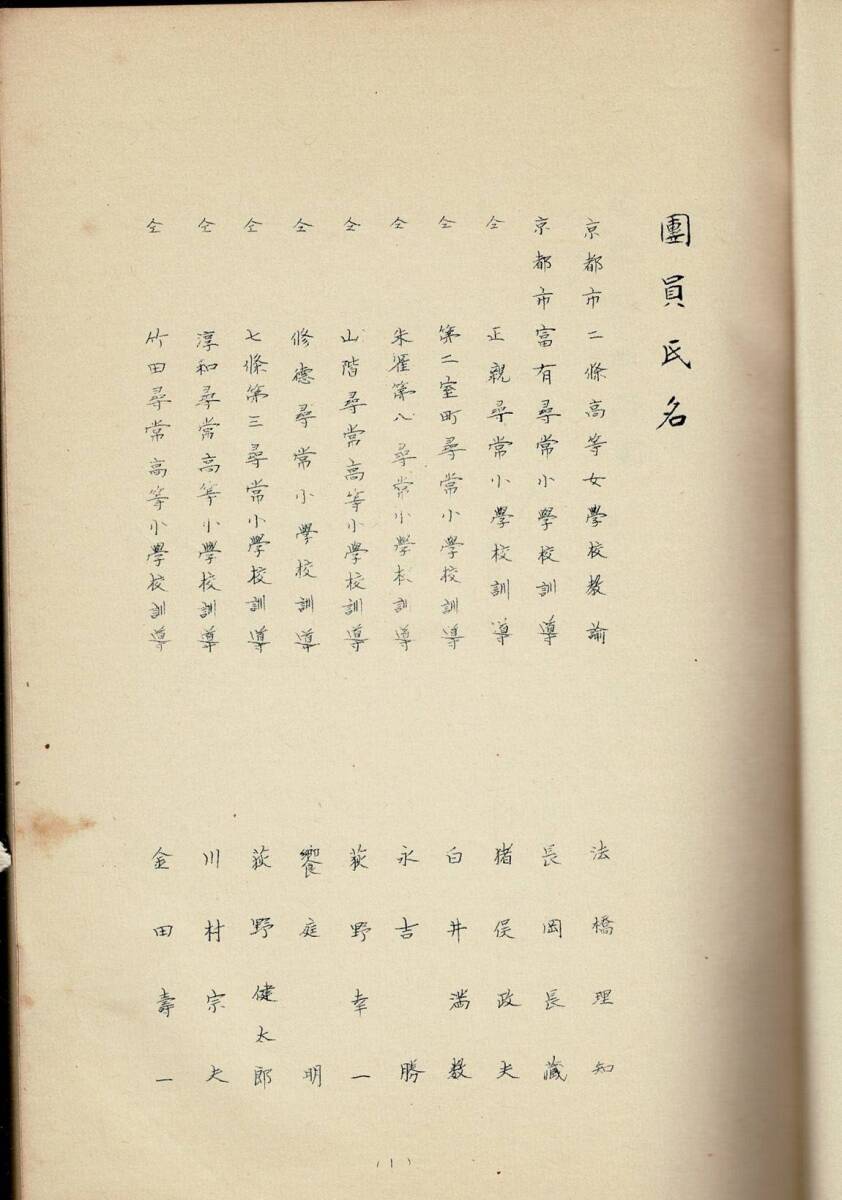 團員氏名
京都市二條高等女學校教諭 法橋理知
京都市富有尋常小學校訓導 長岡長藏
仝 正親尋常小學校訓導 猪俣政夫
仝 第二室町尋常小學校訓導 白井満数
仝 朱雀第八尋常小學校訓導 永吉勝
仝 山階尋常高等小學校訓導 荻野幸一
仝 修德尋常小學校訓導 饗庭明
仝 七條第三尋常小學校訓導 荻野健太郎
仝 淳和尋常高等小學校訓導 川村宗夫
仝 竹田尋常高等小學校訓導 金田壽一
(1)